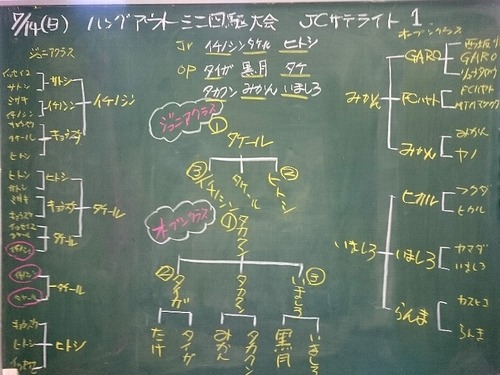 7/14(日) ハングアウトミニ四駆大会 JCサテライト1
Jr イチノシン タケル ヒトシ
OP タイガ 黒月 タケ
タカクン みかん いましろ
ジュニアクラス
イッセイ
サトシ
ミサキ
イチノシン
キョウスケ
タケール
ヒトシ
サトシ
イチノシン
キョウスケ
イチノシン
ヒトシ
キョウスケ
タケール
タケール
タケール
ヒトシ
キョウスケ
ヒトシ
ジュニアクラス
①
タケール
③ ②
イチノシン タケール ヒトシ
オープンクラス
①
タカクン
② ③
タイガ タカクン いましろ
たけ タイガ みかん タカクン 黒月 いましろ
オープンクラス
みかん
GARO
GARO
FCハヤト
FCハヤト
みかん
みかん
ヤノ
いましろ
ヒカル
フクダ
ヒカル
いましろ
ヤマダ
いましろ
らんま
カズヒコ
らんま